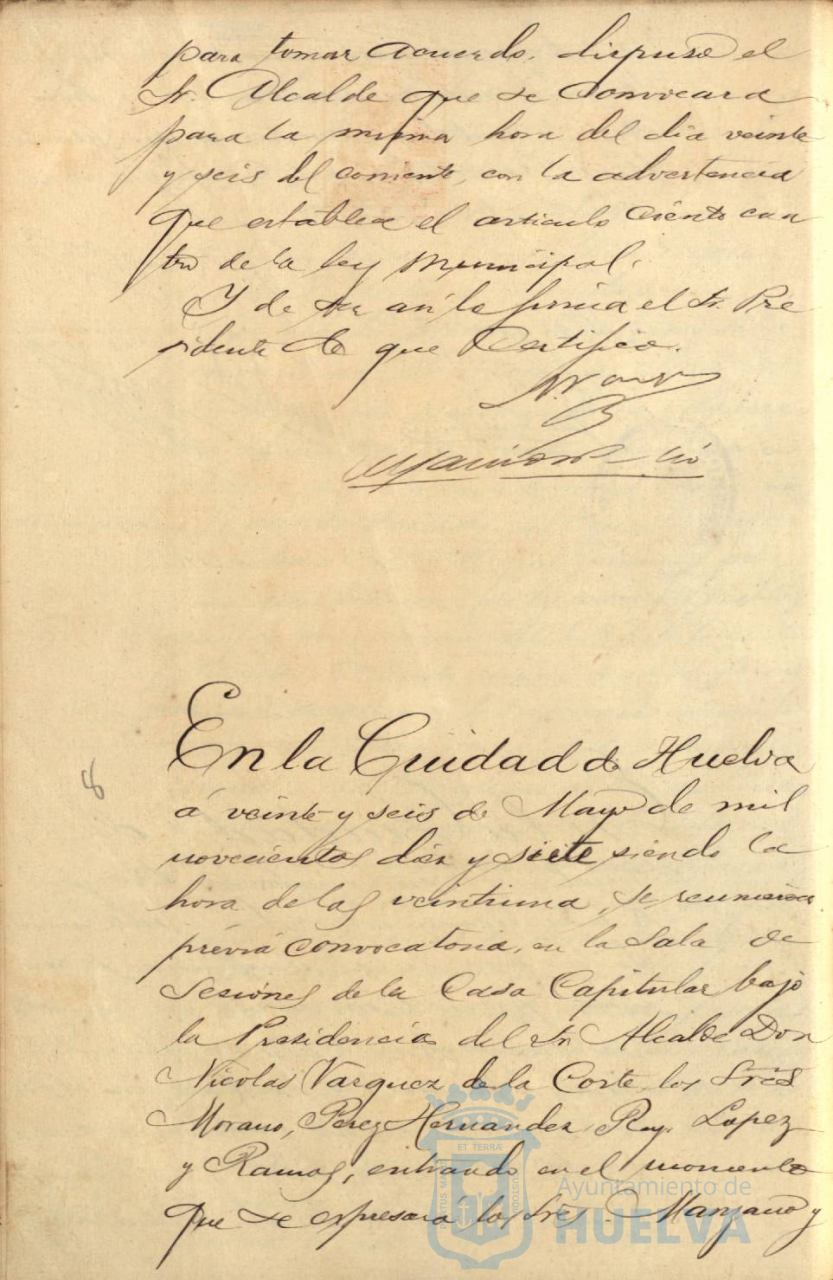 para tomar acuerdo, dispuso el
Sr. Alcalde que se convocara
para la misma hora del dia veinte
y seis del corriente, con la advertencia
que establece el articulo ciento cua
tro de la ley municipal.
Y de ser asi lo firma el Sr. Pre
sidente de que Certifico.
En la Ciudad de Huelva
á veinte y seis de Mayo de mil
novecientos diez y siete siendo la
hora de las veintiuna, se reunieron
prévia convocatoria, en la Sala de
Sesiones de la Casa Capitular bajo
la Presidencia del Sr. Alcalde Don
Nicolas Vazquez de la Corte, los Sres
Morano, Perez Hernandez, Rey, Lopez
y Ramos, entrando en el momento
que se espresará los Sres. Manzano y
8
ET TERRÆ
Ayuntamiento de
HUELVA